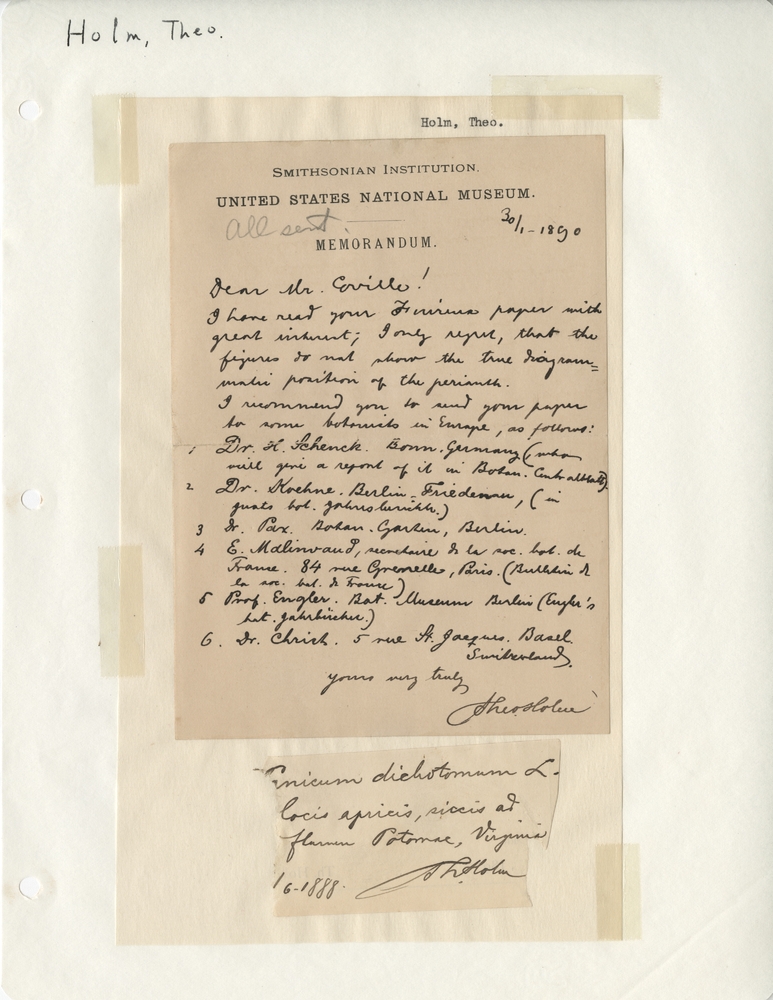 Holm, Theo.
Holm, Theo.
SMITHSONIAN INSTITUTION.
UNITED STATES NATIONAL MUSEUM.
All sent.
30/1-1890
MEMORANDUM.
Dear Mr. Coville!
I have read your Fuirena paper with
great interest; I only regret, that the
figures do not show the true diagram=
matic position of the perianth.
I recommend you to send your paper
to some botanists in Europe, as follows:
1 Dr. H. Schenck. Bonn. Germany (who
will give a report of it in Botan. Centralblatt).
2 Dr. Koehne. Berlin-Friedenau, (in
Justs bot. Jahresberichte.)
3 Dr. Pax. Botan. Garten, Berlin.
4 E. Malinvaud, secretaire de la soc. bot. de
France. 84 rue Grenelle, Paris. (Bulletin de
la soc. bot. de France)
5 Prof. Engler. Bot. Museum Berlin (Engler's
bot. Jahrbücher.)
6. Dr. Christ. 5 rue St. Jacques. Basel.
Switzerland.
yours very truly
Theo. Holm
Panicum dichotomum L.
locis apricis, siccis ad
flumen Potomac, Virginia
1/6-1888. Th. Holm